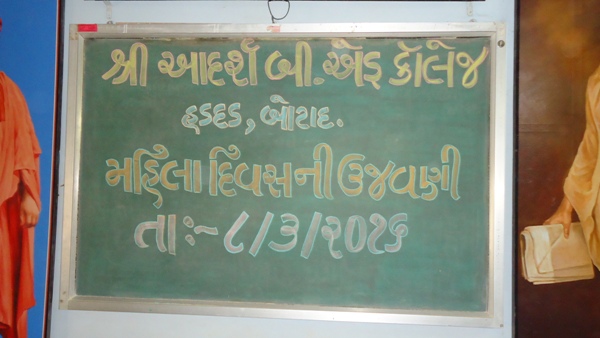 શ્રી આદર્શ બી.એઇ કૉલેજ
હડદડ, બોટાદ.
મહિલા દિવસની ઉજવણી
તાઃ- ૮/૩/૨૦૧૬